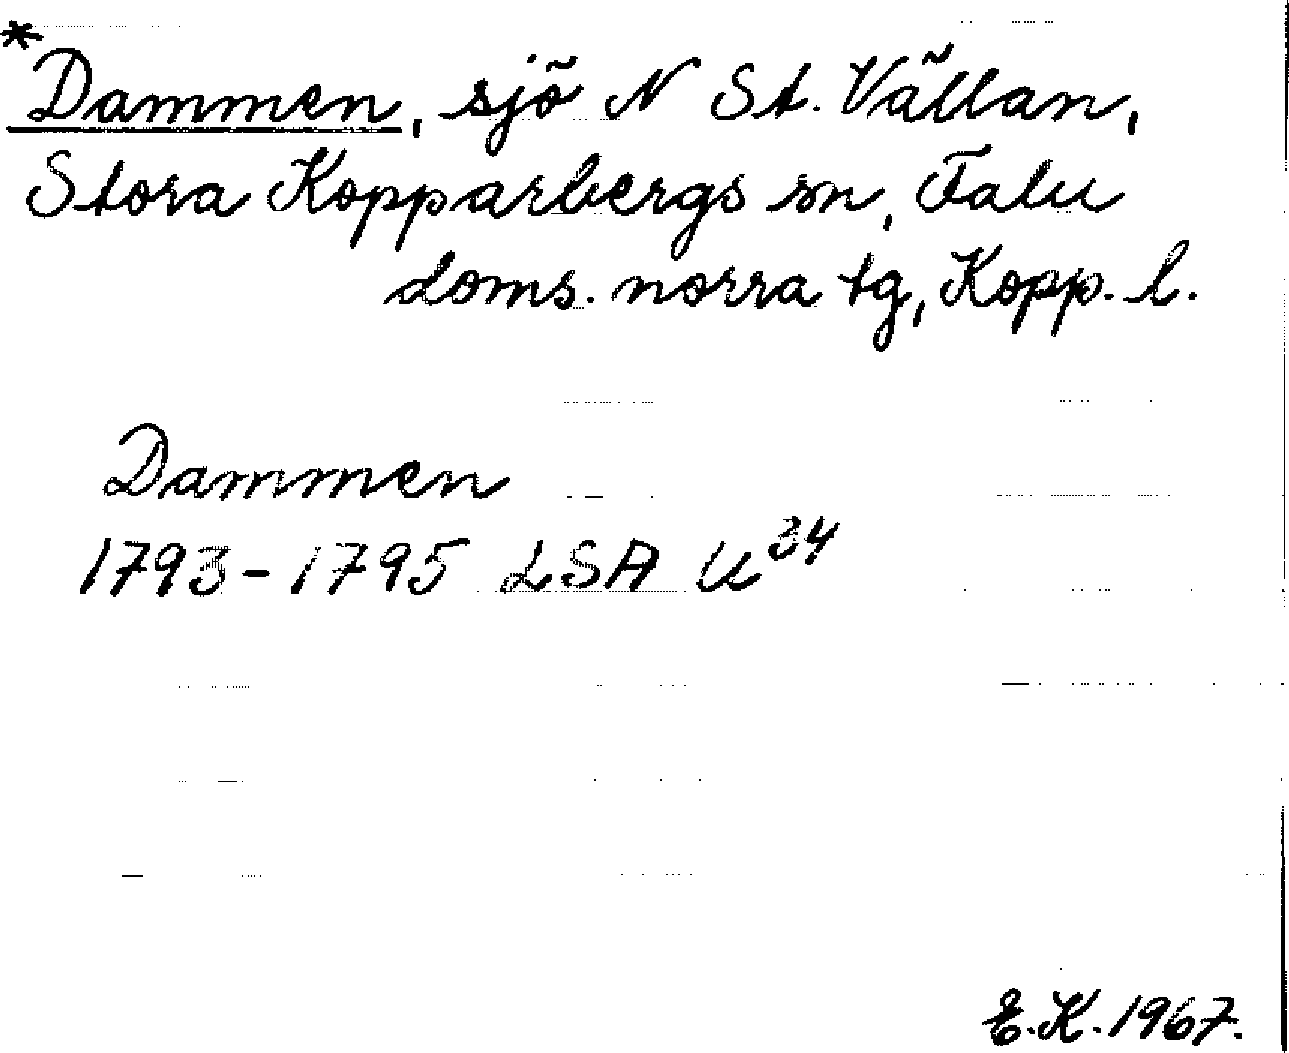 *
Dammen, sjö N St. Vällan,
Stora Kopparbergs sn, Falu
doms. norra tg, Kopp. l.
Dammen
1793-1795 LSA U34
E.K. 1967.